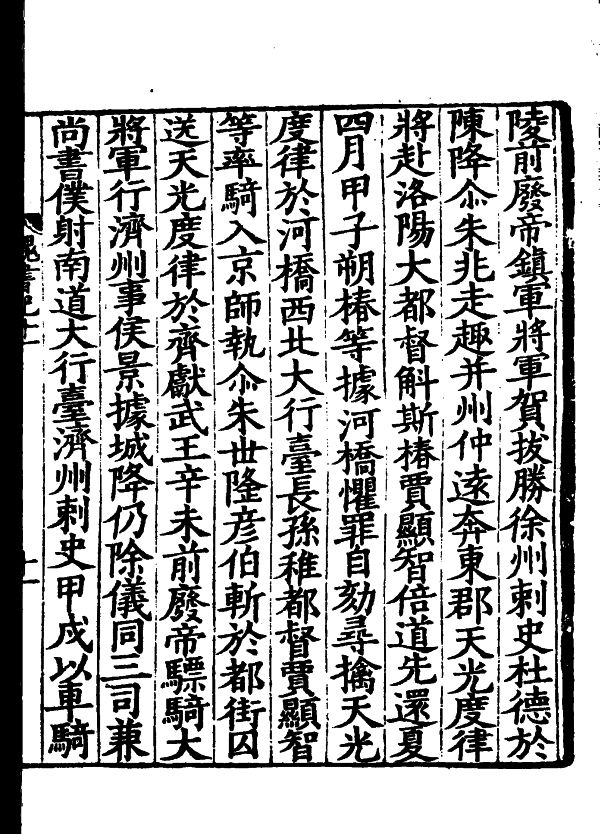 陵前廢帝鎮軍將軍賀拔勝徐州刺史杜德於
陳降尒朱兆走趣并州仲遠奔東郡天光度律
將赴洛陽大都督斛斯椿賈顯智倍道先還夏
四月甲子朔椿等據河橋懼罪自劾尋擒天光
度律於河橋西北大行臺長孫稚都督賈顯智
等率騎入京師執尒朱世隆彥伯斬於都街囚
送天光度律於齊獻武王辛未前廢帝驃騎大
將軍行濟州事侯景據城降仍除儀同三司兼
尚書僕射南道大行臺濟州刺史甲戌以車騎